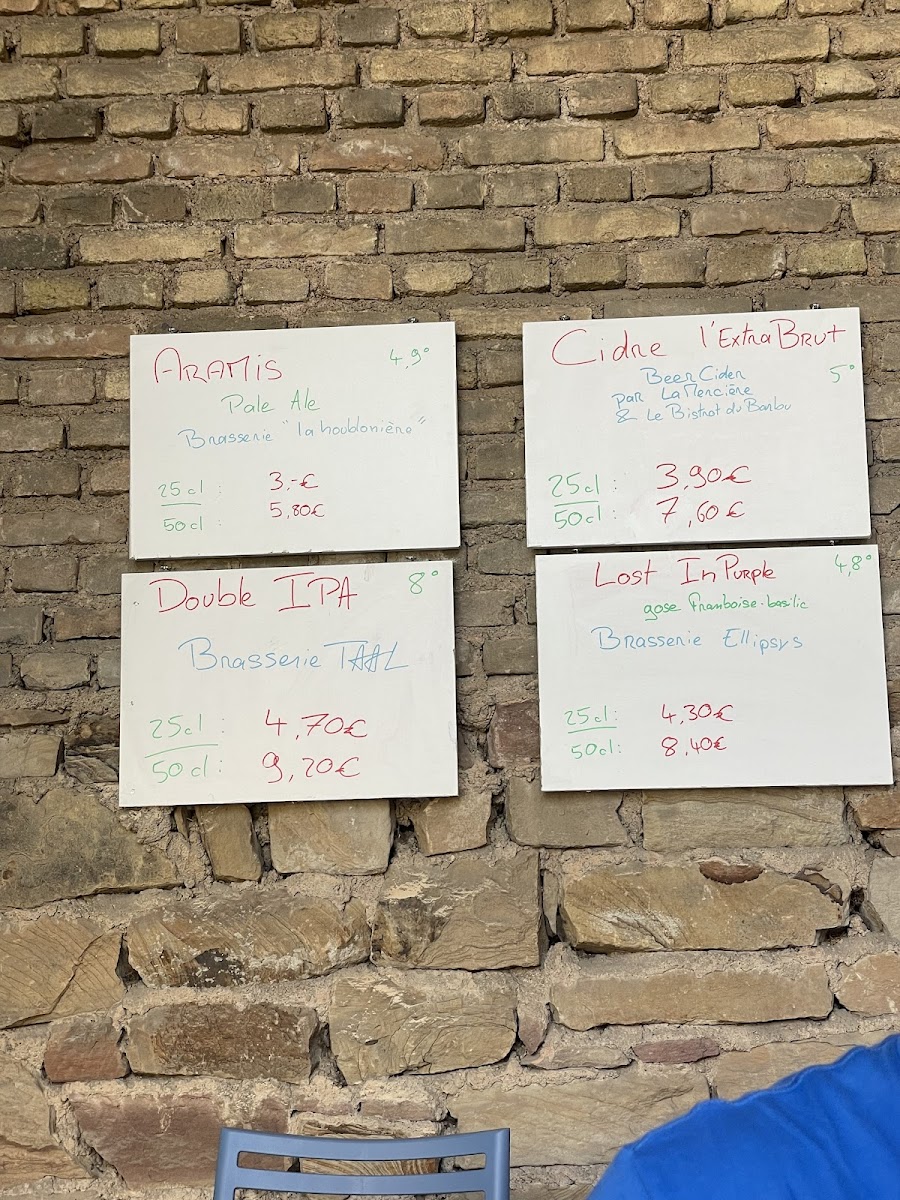 ARAMIS 4,9°
Pale Ale
Brasserie "la houblonière"
25cl : 3,-€
50cl : 5,80€
Cidre l'Extra BRUT
5°
Beer Cider
par La Mercière
& Le Bistrot du Barbu
25cl : 3,90€
50cl : 7,60€
Double IPA 8°
Brasserie TAAL
25cl : 4,70€
50cl : 9,20€
Lost In Purple 4,8°
gose framboise-basilic
Brasserie Ellipsys
25cl : 4,30€
50cl : 8,40€